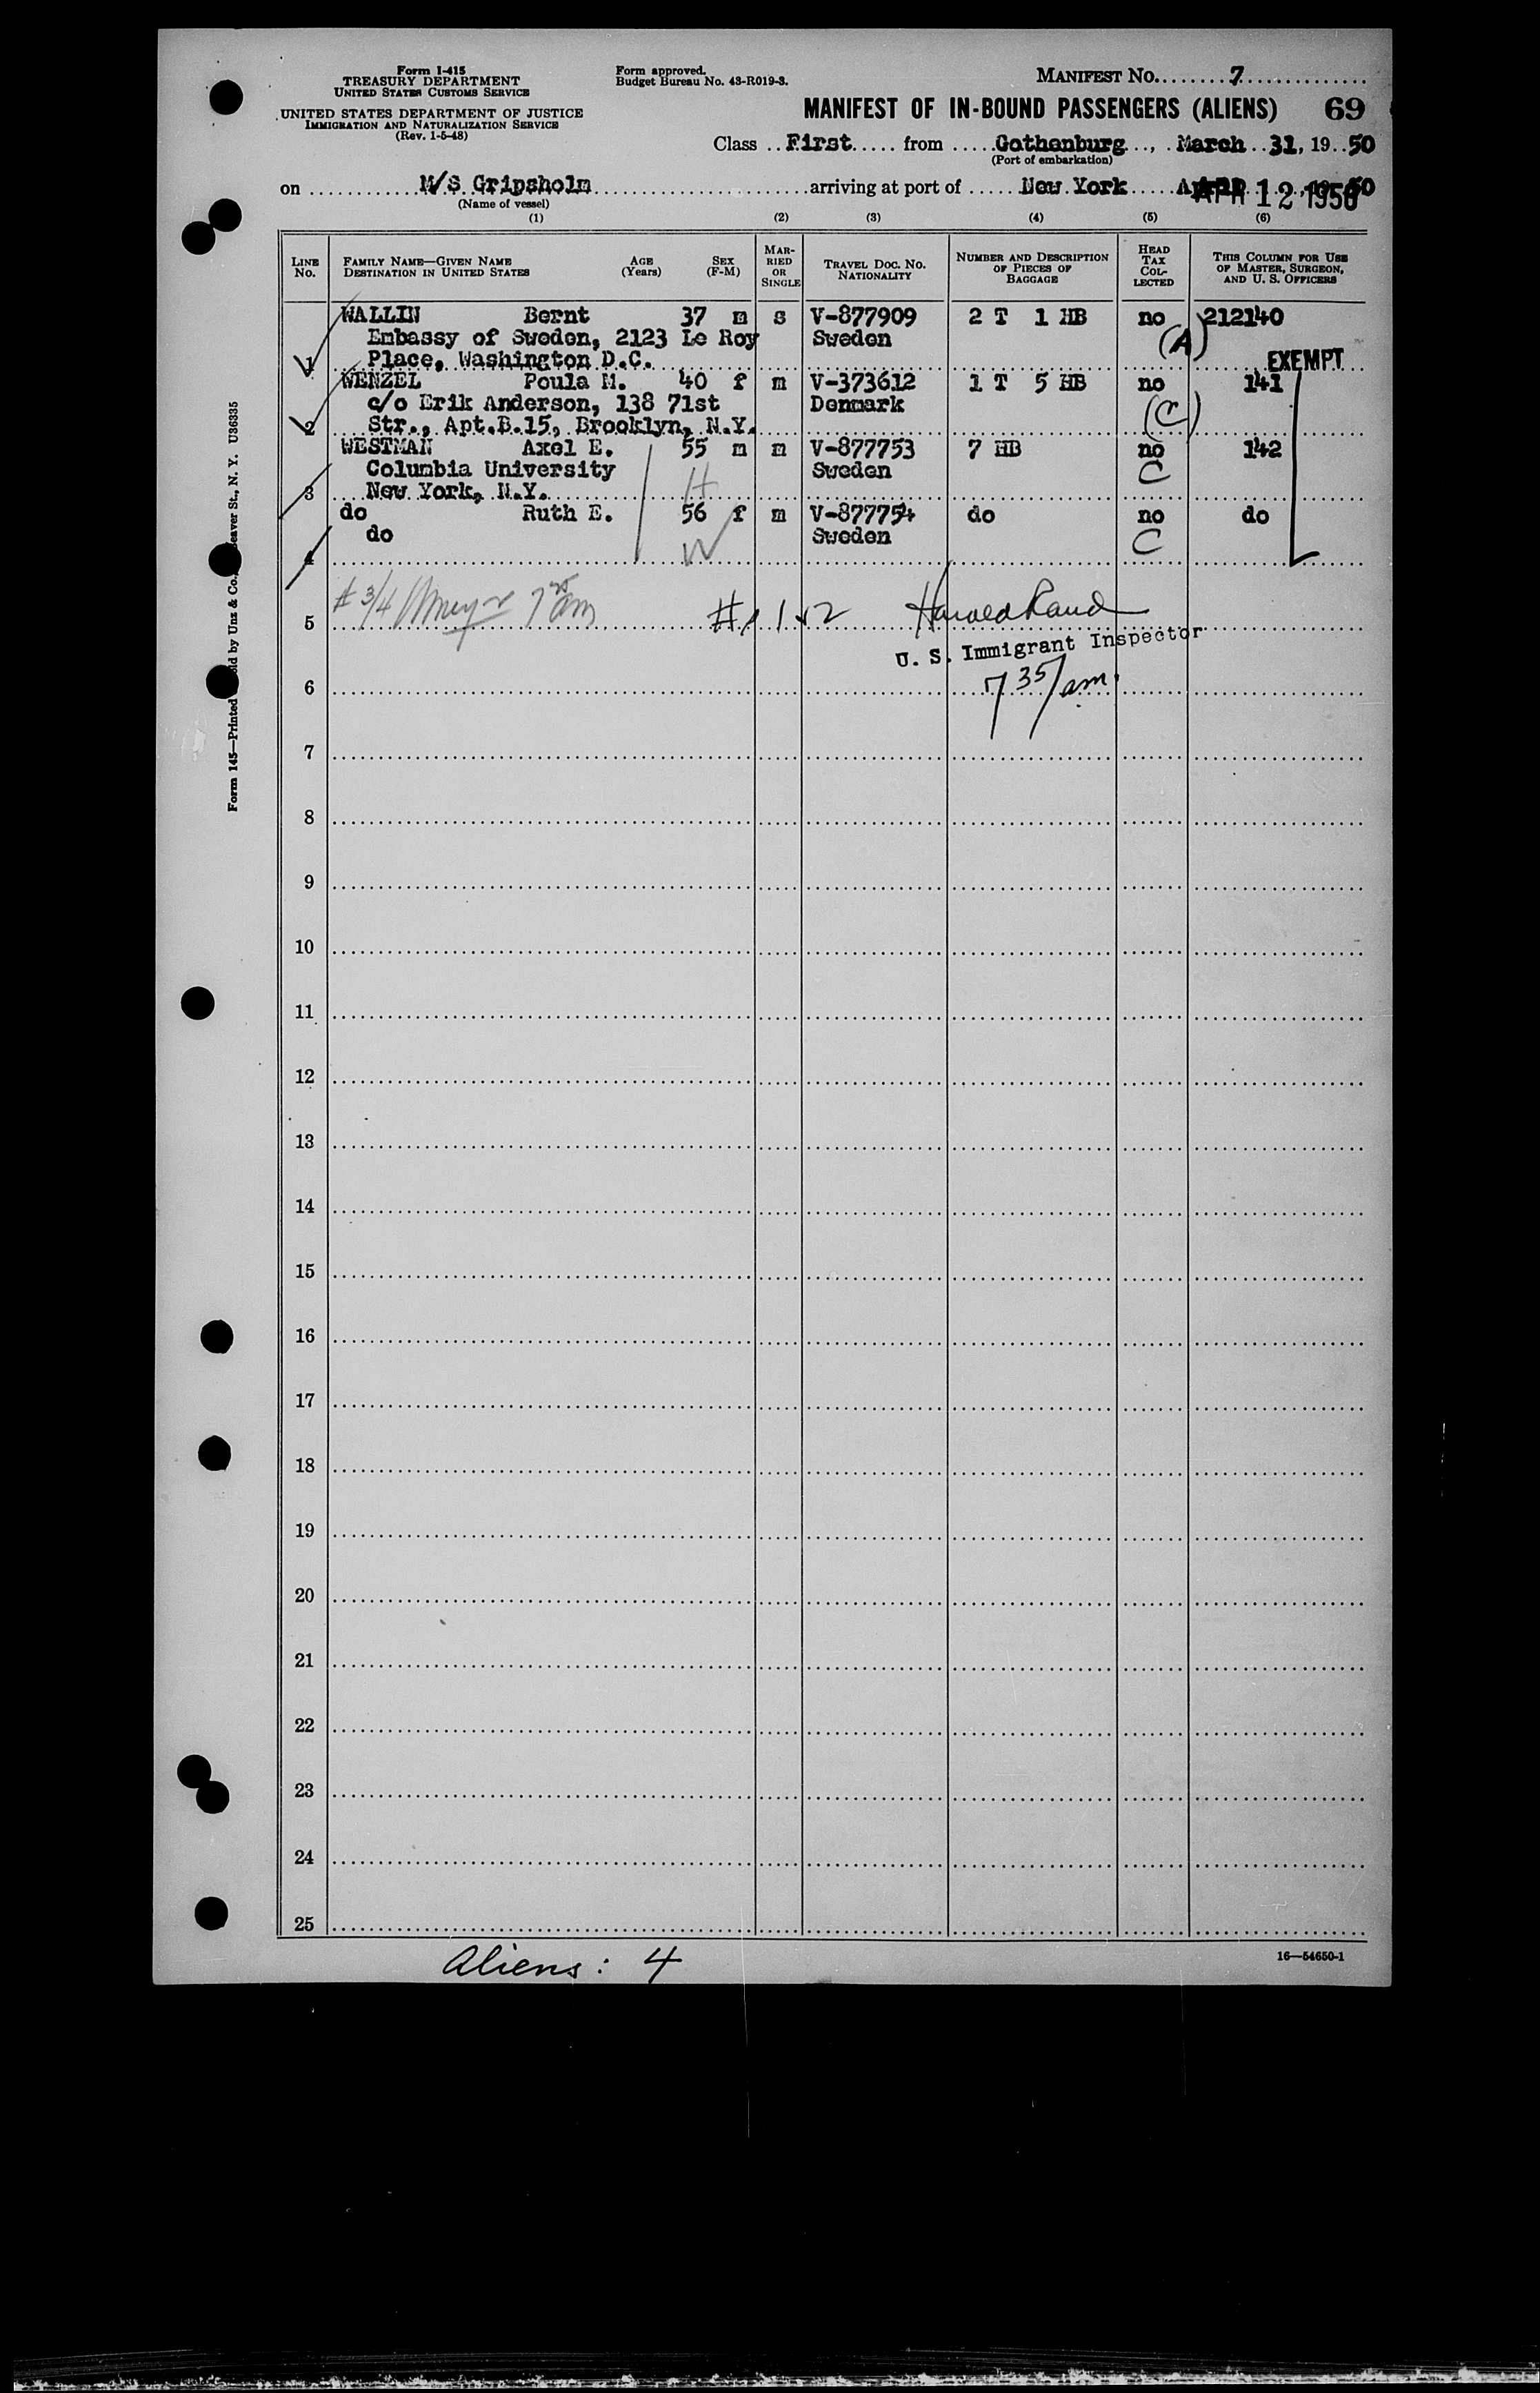 Form I-415
TREASURY DEPARTMENT
UNITED STATES CUSTOMS SERVICE
UNITED STATES DEPARTMENT OF JUSTICE
IMMIGRATION AND NATURALIZATION SERVICE
(Rev. 1-5-48)
Form approved.
Budget Bureau No. 43-R019-3.
MANIFEST No. 7
MANIFEST OF IN-BOUND PASSENGERS (ALIENS) 69
Class First from Gothenburg, March 31, 1950
(Port of embarkation)
on M/S Gripsholm arriving at port of New York APR 12 1950
(Name of vessel)
(1) (2) (3) (4) (5) (6)
LINE No. FAMILY NAME—GIVEN NAME DESTINATION IN UNITED STATES AGE (Years) SEX (F-M) MARRIED OR SINGLE TRAVEL DOC. NO. NATIONALITY NUMBER AND DESCRIPTION OF PIECES OF BAGGAGE HEAD TAX COLLECTED THIS COLUMN FOR USE OF MASTER, SURGEON, AND U. S. OFFICERS
WALLIN Bernt 37 m s V-877909 2 T 1 HB no 212140
Embassy of Sweden, 2123 Le Roy Sweden (A)
1 Place, Washington D.C. EXEMPT
WENZEL Poula M. 40 f m V-373612 1 T 5 HB no 141
c/o Erik Anderson, 138 71st Denmark (C)
2 Str., Apt.B.15, Brooklyn, N.Y.
WESTMAN Axel E. 55 m m V-877753 7 HB no 142
Columbia University Sweden C
3 New York, N.Y. H
do Ruth E. 56 f m V-877754 do no do
do Sweden C
4 W
# 3/4 7 am
5 # 1 & 2 Harold Rand
U. S. Immigrant Inspector
6 7 35/am
7
8
9
10
11
12
13
14
15
16
17
18
19
20
21
22
23
24
25
Aliens: 4
16—54650-1
Form 145—Printed
ld by Unz & Co.
eaver St., N. Y. U36335